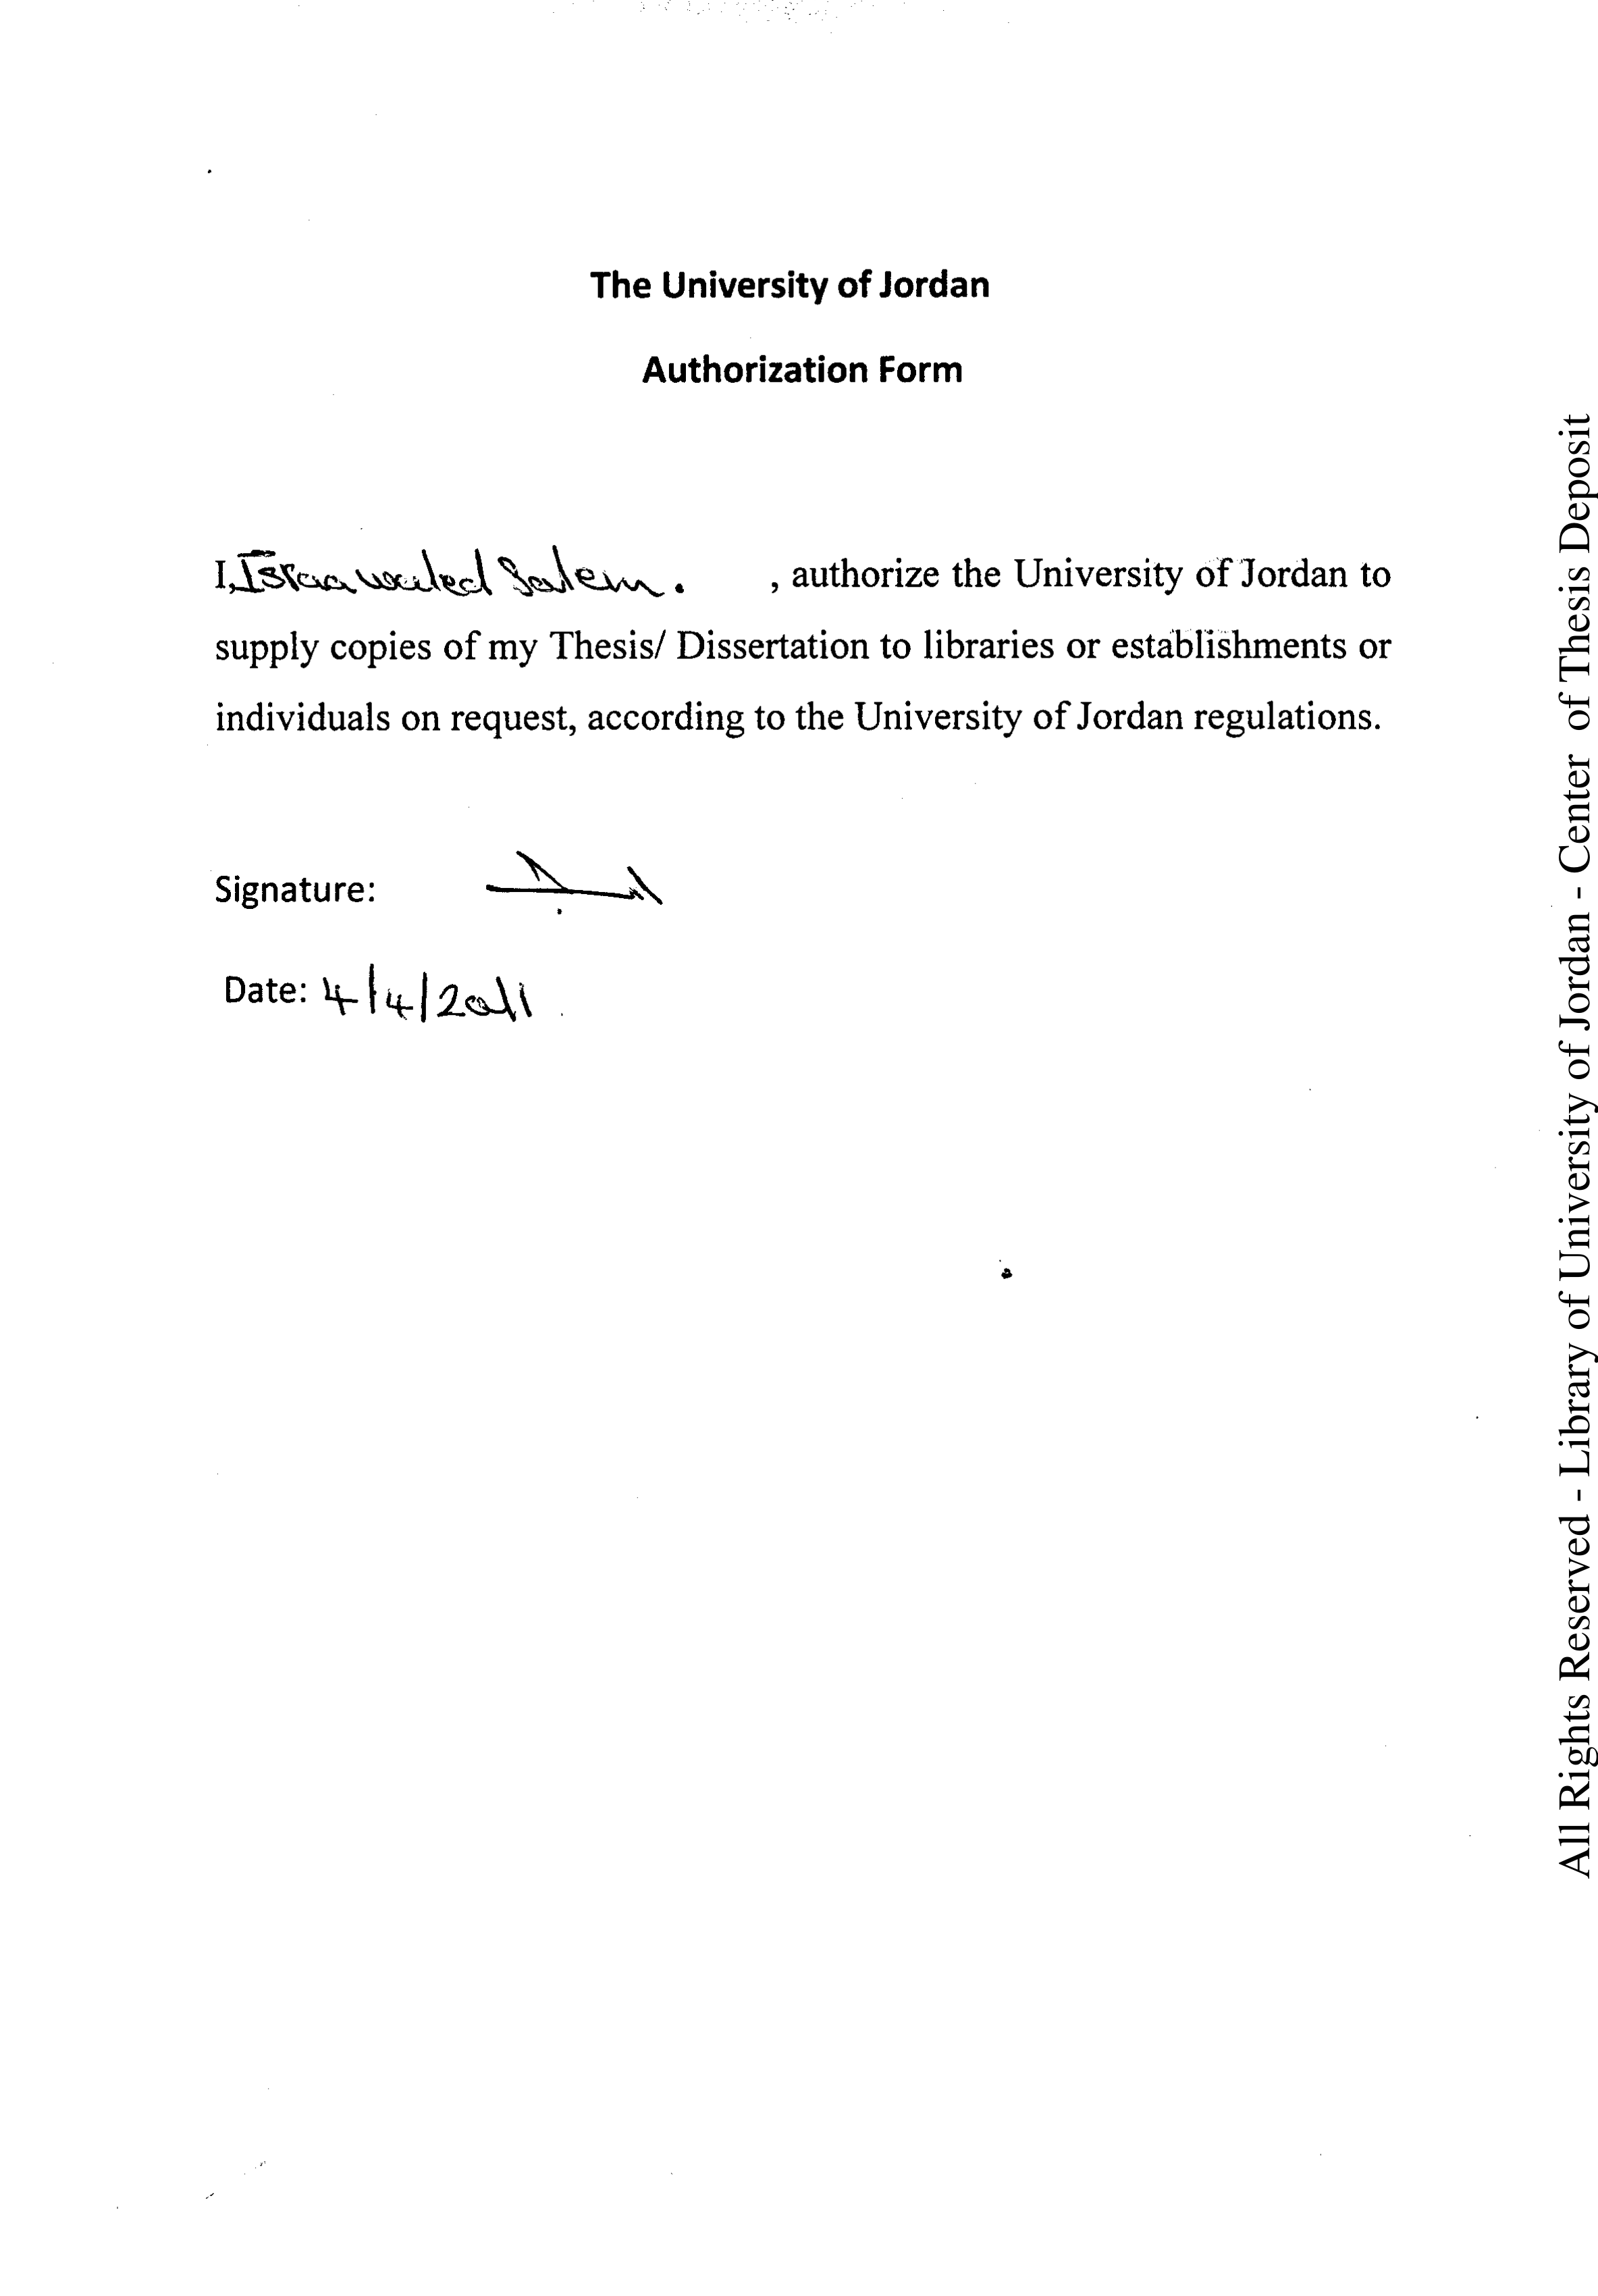 The University of Jordan
Authorization Form
I, Israa waled Salem. , authorize the University of Jordan to
supply copies of my Thesis/ Dissertation to libraries or establishments or
individuals on request, according to the University of Jordan regulations.
Signature:
Date: 4/4/2011
All Rights Reserved - Library of University of Jordan - Center of Thesis Deposit